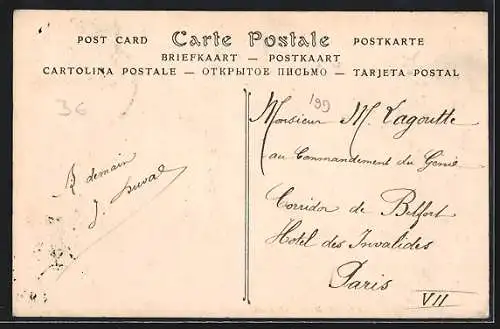 POST CARD Carte Postale POSTKARTE
BRIEFKAART — POSTKAART
CARTOLINA POSTALE — ОТКРЫТОЕ ПИСЬМО — TARJETA POSTAL
36
199
Monsieur M. Lagoutte
au Commandement du Génie
Corridor de Belfort
Hotel des Invalides
Paris
VII
demain
J. Duval